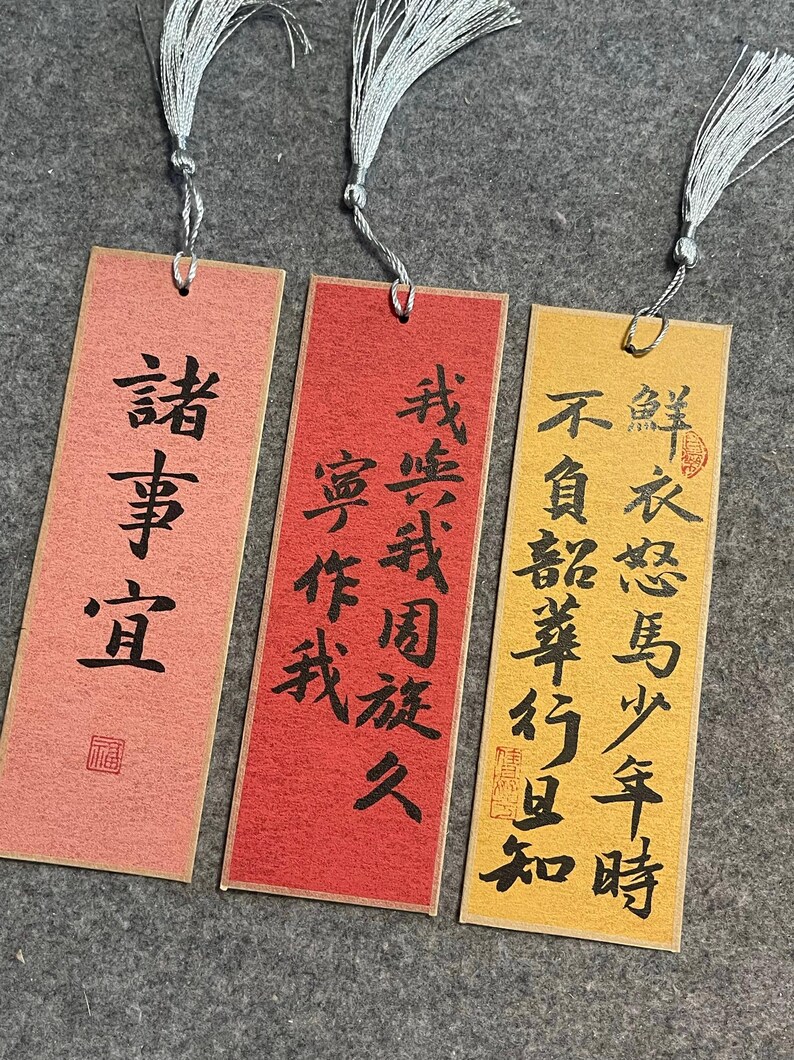 諸事宜
福
我與我周旋久
寧作我
鮮衣怒馬少年時
不負韶華行且知